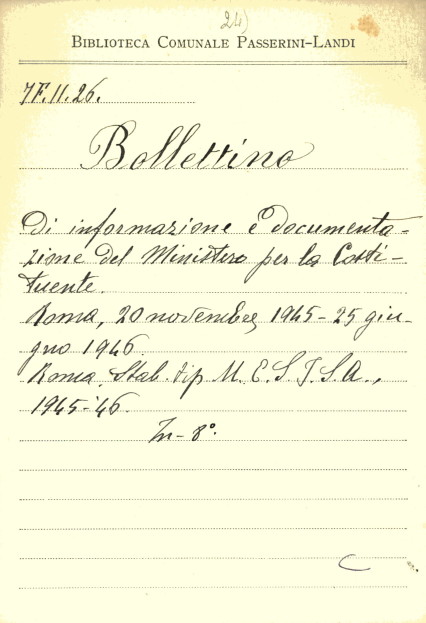 24)
BIBLIOTECA COMUNALE PASSERINI-LANDI
7F.11.26.
Bollettino
Di informazione e documenta-
zione del Ministero per la Costi-
tuente.
Roma, 20 novembre, 1945-25 giu-
gno 1946.
Roma, Stab. tip. U. E. S. I. S. A.,
1945-'46.
In-8°.
C